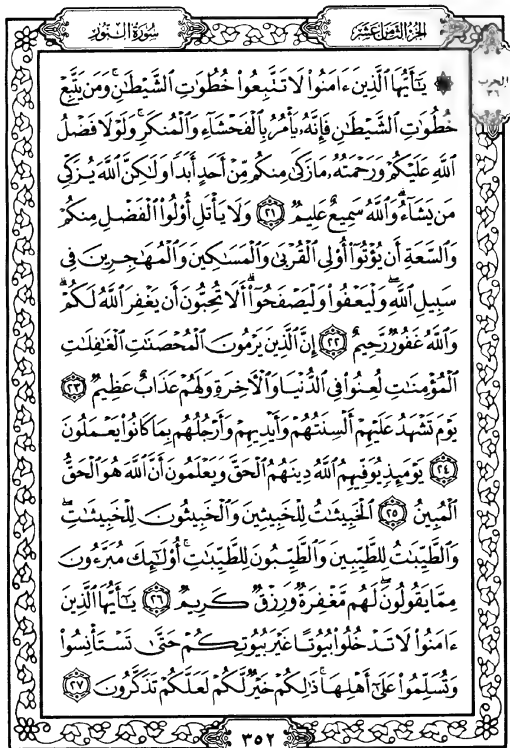 سورة النور
الجزء الثامن عشر
الحزب
٣٦
۞ يَٰٓأَيُّهَا ٱلَّذِينَ ءَامَنُوا۟ لَا تَتَّبِعُوا۟ خُطُوَٰتِ ٱلشَّيْطَٰنِ ۚ وَمَن يَتَّبِعْ
خُطُوَٰتِ ٱلشَّيْطَٰنِ فَإِنَّهُۥ يَأْمُرُ بِٱلْفَحْشَآءِ وَٱلْمُنكَرِ ۚ وَلَوْلَا فَضْلُ
ٱللَّهِ عَلَيْكُمْ وَرَحْمَتُهُۥ مَا زَكَىٰ مِنكُم مِّنْ أَحَدٍ أَبَدًا وَلَٰكِنَّ ٱللَّهَ يُزَكِّى
مَن يَشَآءُ ۗ وَٱللَّهُ سَمِيعٌ عَلِيمٌ ٢١ وَلَا يَأْتَلِ أُو۟لُوا۟ ٱلْفَضْلِ مِنكُمْ
وَٱلسَّعَةِ أَن يُؤْتُوٓا۟ أُو۟لِى ٱلْقُرْبَىٰ وَٱلْمَسَٰكِينَ وَٱلْمُهَٰجِرِينَ فِى
سَبِيلِ ٱللَّهِ ۖ وَلْيَعْفُوا۟ وَلْيَصْفَحُوٓا۟ ۗ أَلَا تُحِبُّونَ أَن يَغْفِرَ ٱللَّهُ لَكُمْ ۗ
وَٱللَّهُ غَفُورٌ رَّحِيمٌ ٢٢ إِنَّ ٱلَّذِينَ يَرْمُونَ ٱلْمُحْصَنَٰتِ ٱلْغَٰفِلَٰتِ
ٱلْمُؤْمِنَٰتِ لُعِنُوا۟ فِى ٱلدُّنْيَا وَٱلْءَاخِرَةِ وَلَهُمْ عَذَابٌ عَظِيمٌ ٢٣
يَوْمَ تَشْهَدُ عَلَيْهِمْ أَلْسِنَتُهُمْ وَأَيْدِيهِمْ وَأَرْجُلُهُم بِمَا كَانُوا۟ يَعْمَلُونَ
٢٤ يَوْمَئِذٍ يُوَفِّيهِمُ ٱللَّهُ دِينَهُمُ ٱلْحَقَّ وَيَعْلَمُونَ أَنَّ ٱللَّهَ هُوَ ٱلْحَقُّ
ٱلْمُبِينُ ٢٥ ٱلْخَبِيثَٰتُ لِلْخَبِيثِينَ وَٱلْخَبِيثُونَ لِلْخَبِيثَٰتِ ۖ
وَٱلطَّيِّبَٰتُ لِلطَّيِّبِينَ وَٱلطَّيِّبُونَ لِلطَّيِّبَٰتِ ۚ أُو۟لَٰٓئِكَ مُبَرَّءُونَ
مِمَّا يَقُولُونَ ۖ لَهُم مَّغْفِرَةٌ وَرِزْقٌ كَرِيمٌ ٢٦ يَٰٓأَيُّهَا ٱلَّذِينَ
ءَامَنُوا۟ لَا تَدْخُلُوا۟ بُيُوتًا غَيْرَ بُيُوتِكُمْ حَتَّىٰ تَسْتَأْنِسُوا۟
وَتُسَلِّمُوا۟ عَلَىٰٓ أَهْلِهَا ۚ ذَٰلِكُمْ خَيْرٌ لَّكُمْ لَعَلَّكُمْ تَذَكَّرُونَ ٢٧
٣٥٢